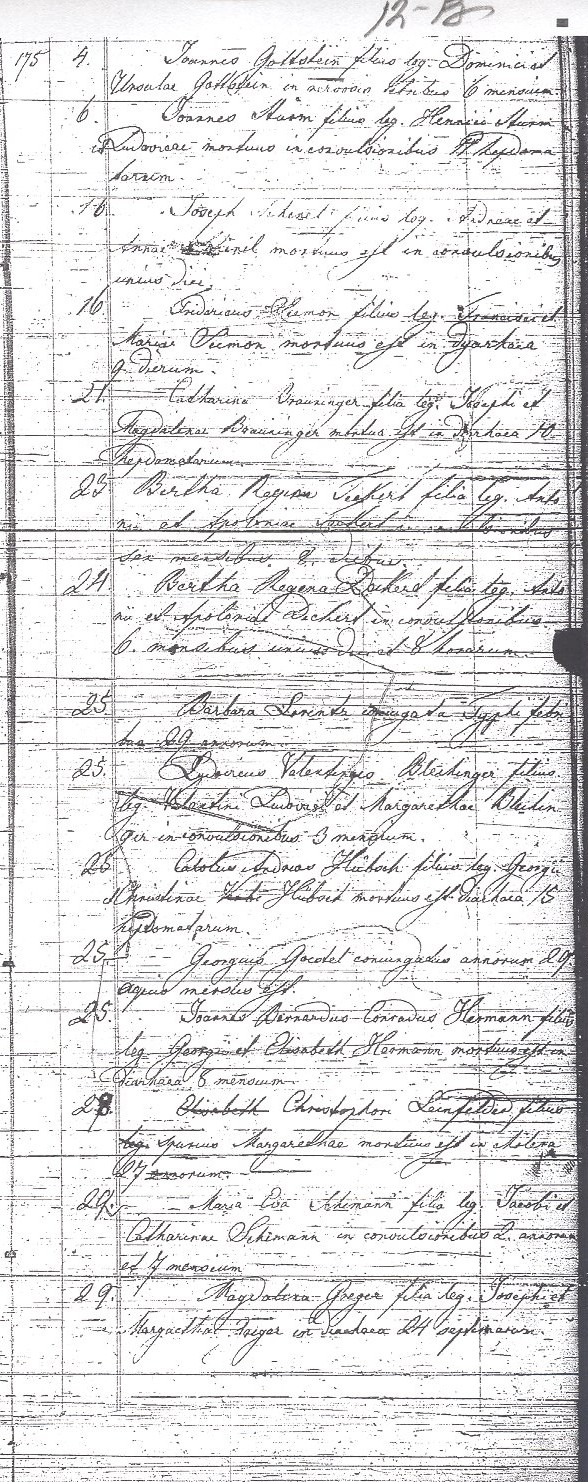 12-B
175 4. Joannes Gottstein filius leg. Dominici et
Ursulae Gottstein in nervosis febribus 6 mensium
6. Joannes Sturm filius leg. Henrici Sturm
et Ludovicae mortuus in convulsionibus hepdoma
tarum.
16. Joseph filius leg. Andreae et
Annae mortuus est in convulsionibus
unius diei
16. Fridericus Simon filius leg. Francisci et
Mariae Simon mortuus est in dyarhaea
9 dierum.
21. Catharina Brauninger filia leg. Josephi et
Magdalenae Brauninger mortua est in diarhaea 10
hepdomatarum.
23 Bertha Regina Teckert filia leg. Anto
nii et Apoloniae in convulsionibus
sex mensibus 8 diebus.
24 Bertha Regena Deckert filia leg. Anto
nii et Apoloniae Dechert in convulsionibus
6. mensibus unius die et 8 horarum.
25 Barbara Lorentz coniugata Typhi febri
bus 29 annorum.
25. Ludovicus Valentinus Bleidinger filius
leg. Valentini Ludovici et Margarethae Bleidin
ger in convulsionibus 3 mensium.
25 Carolus Andreas Hübsch filius leg. Georgii
et Christinae Hübsch mortuus est diarhaea 15
hepdomatarum.
25 Georgius Goestel coniungatus annorum 29
aquis mersus est.
25. Joannes Bernardus Conradus Hermann filius
leg. Georgii et Elisabeth Hermann mortuus est in
diarhaea 8 mensium.
28. Elisabeth Christophor Leinfelder filius
leg. spurius Margarethae mortuus est in Kolera
27 annorum.
29. Maria Eva Schimann filia leg. Jacobi et
Catharinae Schimann in convulsionibus 2 annorum
et 7 mensium
29. Magdalena Greger filia leg. Josephi et
Margaetha Greger in diarhaea 24 septimarum.